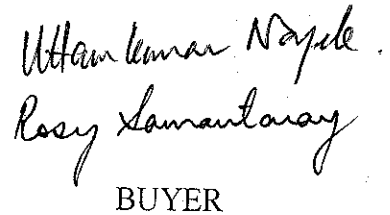 Uttam kumar Nayak.
Rosy Samantaray
BUYER